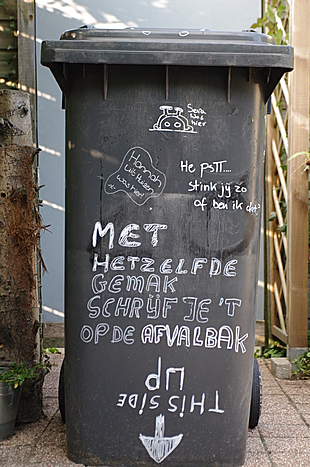 Sera
was
hier
Hannah
was hier
He pstt....
stink jij zo
of ben ik dat?
MET
HETZELFDE
GEMAK
SCHRIJF JE 'T
OP DE AFVALBAK
THIS SIDE
UP